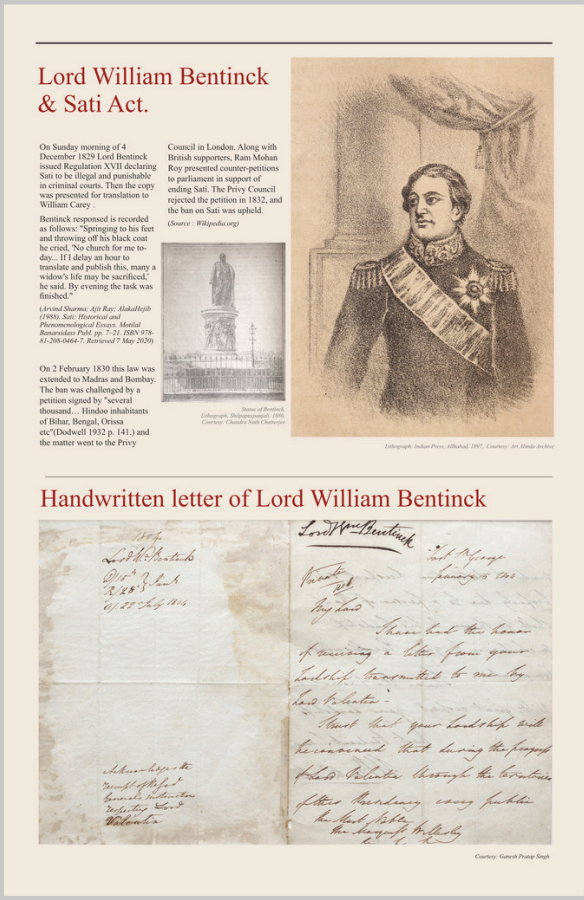 Lord William Bentinck
& Sati Act.
On Sunday morning of 4
December 1829 Lord Bentinck
issued Regulation XVII declaring
Sati to be illegal and punishable
in criminal courts. Then the copy
was presented for translation to
William Carey .
Bentinck responsed is recorded
as follows: "Springing to his feet
and throwing off his black coat
he cried, 'No church for me to-
day... If I delay an hour to
translate and publish this, many a
widow's life may be sacrificed,'
he said. By evening the task was
finished."
(Arvind Sharma; Ajit Ray; AlakaHejib
(1988). Sati: Historical and
Phenomenological Essays. Motilal
Banarsidass Publ. pp. 7–21. ISBN 978-
81-208-0464-7. Retrieved 7 May 2020)
On 2 February 1830 this law was
extended to Madras and Bombay.
The ban was challenged by a
petition signed by "several
thousand… Hindoo inhabitants
of Bihar, Bengal, Orissa
etc"(Dodwell 1932 p. 141.) and
the matter went to the Privy
Council in London. Along with
British supporters, Ram Mohan
Roy presented counter-petitions
to parliament in support of
ending Sati. The Privy Council
rejected the petition in 1832, and
the ban on Sati was upheld.
(Source : Wikipedia.org)
Statue of Bentinck,
Lithograph, Shilpapuspanjali, 1886.
Courtesy: Chandra Nath Chatterjee
Lithograph. Indian Press, Allhabad, 1897, Courtesy: Art Alinda Archive
Handwritten letter of Lord William Bentinck
1804
Lord Wm Bentinck
22d July 1804
Acknowledges the
receipt of
respecting Lord
Valentia
Lord Wm Bentinck
Fort St George
Private
My Lord
I have had the honor
of receiving a letter from your
Lordship transmitted to me by
Lord Valentia.
I trust that your Lordship will
be convinced that during the progress
of Lord Valentia through the territories
of this Presidency every public
The Most Noble
The Marquess Wellesley
Courtesy: Ganesh Pratap Singh